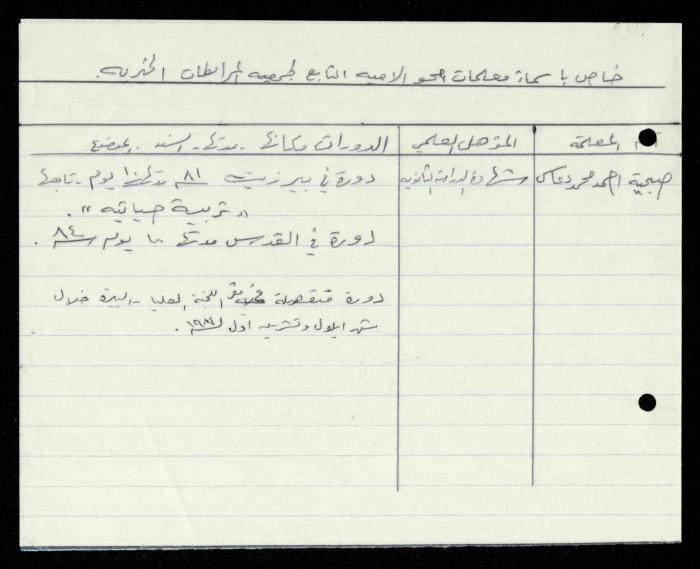 خاص باسماء معلمات محو الاميه التابع لجمعيه المرابطات الخيريه.
المعلمة المؤهل العلمي الدورات مكانها - مدتها - السنه - الموضوع
صبحية احمد محمد دعاس شهادة الدراسه الثانويه دورة في بيرزيت ٨١ مدتها ١٠ يوم - تابعها
"تربية حياتيه".
دورة في القدس مدتها يوم ٨٤.
دورة منفصلة اللجنة العليا - البيرة خلال
شهر ايلول وتشرين اول ١٩٨٤.